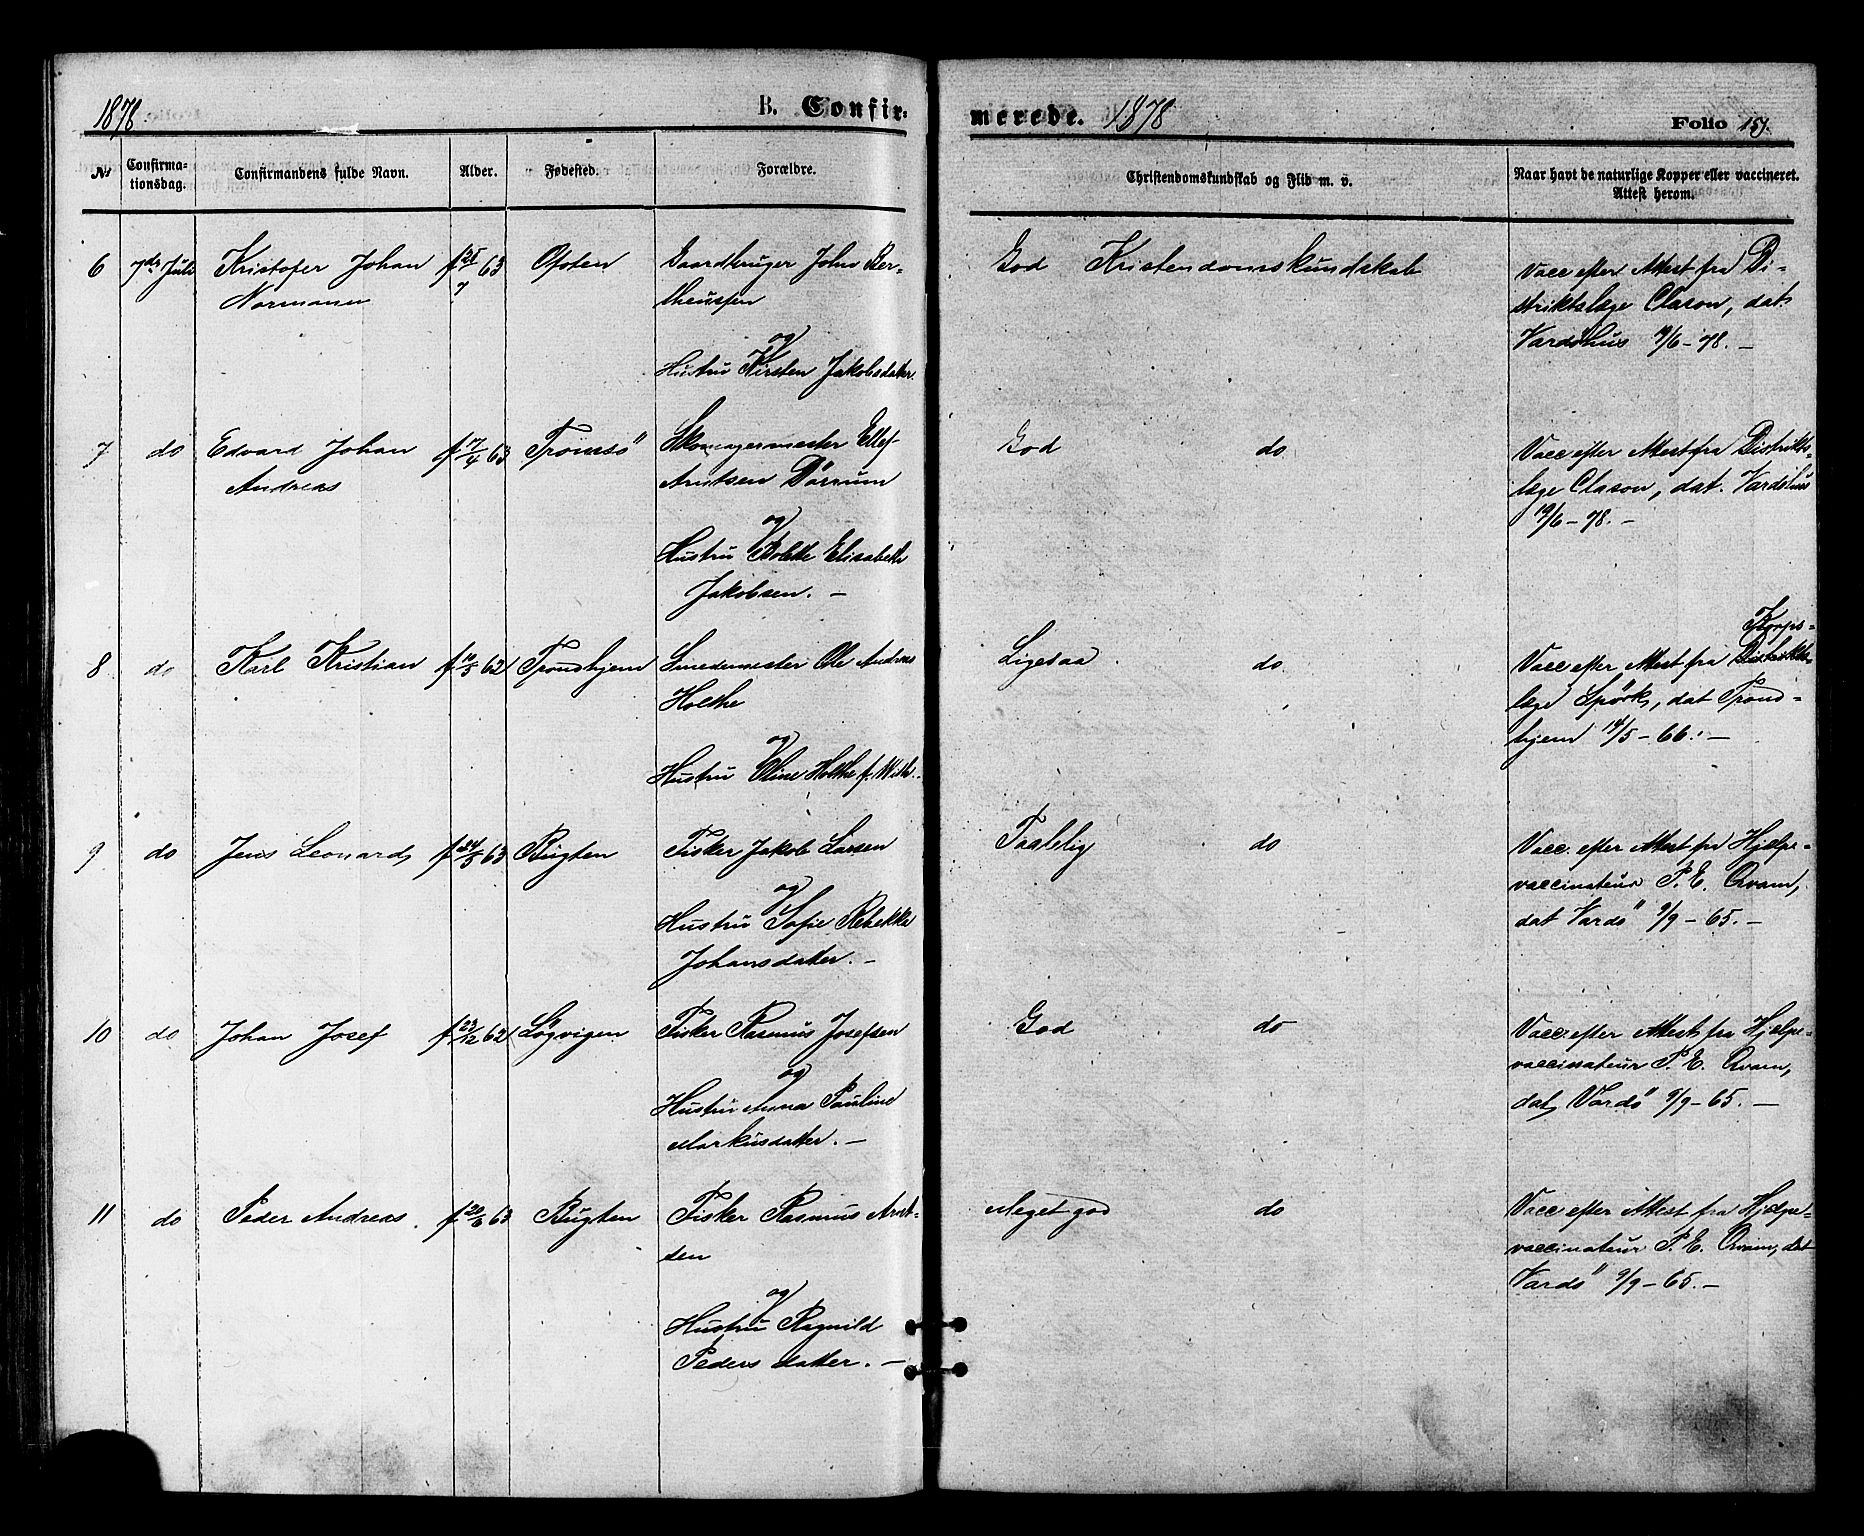 1878
B. Confir-
merede. 1878
Folio 151.
№
Confirma-
tionsdag.
Confirmandens fulde Navn.
Alder.
Fødested.
Forældre.
Christendomskundskab og Flid m. v.
Naar havt de naturlige Kopper eller vaccineret.
Attest herom.
6 7de Juli Kristofer Johan f 25/7 63 Ofoten Gaardbruger John Ber-
Normann
theussen
og
Hustru Kirsten Jakobsdatter
God Kristendomskundskab
Vacc efter Attest fra Di-
striktslæge Clason, dat.
Vardöhus 19/6-78. -
7 do Edvard Johan f 17/4 63 Tromsö Skomagermester Ellef
Andreas
Arntsen Dørum
og
Hustru Bolette Elisabeth
Jakobsen. -
God do
Vacc efter Attest fra Distrikts-
læge Clason, dat. Vardöhus
19/6-78. -
8 do Karl Kristian f 10/5 62 Trondhjem Smedemester Ole Andreas
Holthe
og
Hustru Eline Holthe f.
Ligesaa do
Korps-
Vacc efter Attest fra Distrikts-
læge Spörk, dat Trond-
hjem 14/5-66. -
9 do Jens Leonard f 24/5 63 Bugten Fisker Jakob Larsen
og
Hustru Sofie Rebekka
Johansdatter. -
Taalelig do
Vacc. efter Attest fra Hjelpe-
vaccinateur P. E. Qvam,
dat Vardö 9/9-65. -
10 do Johan Josef f 23/12 62 Løgvigen Fisker Rasmus Josefsen
og
Hustru Anna Pauline
Markusdatter. -
God do
Vacc. efter Attest fra Hjelpe-
vaccinateur P. E. Qvam,
dat, Vardö 9/9-65. -
11 do Peder Andreas f 20/6 63 Bugten Fisker Rasmus Arnt-
sen
og
Hustru Ragnild
Peders datter. -
Meget god do
Vacc efter Attest fra Hjelpe-
vaccinateur P. E. Qvam, dat
Vardö 9/9-65. -